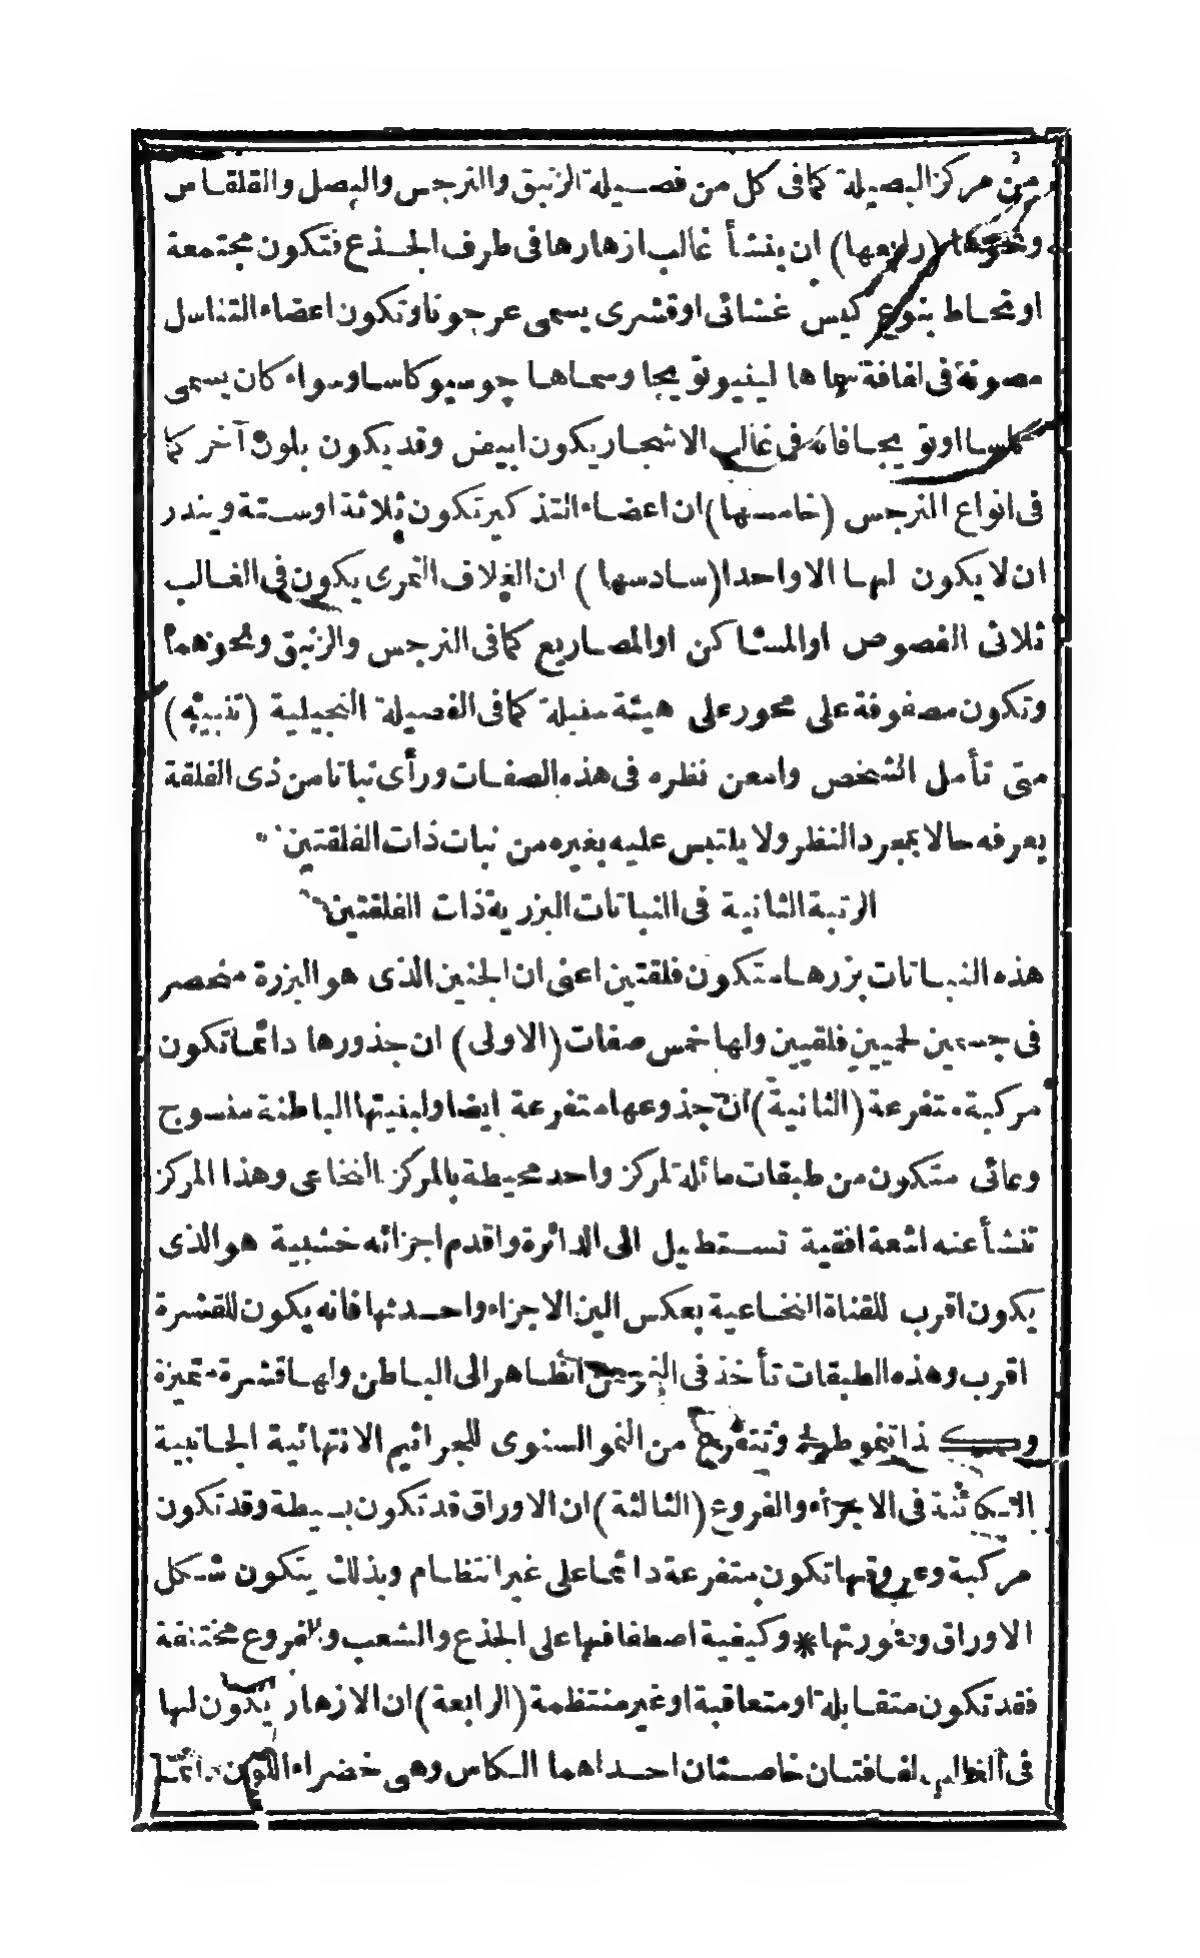 من مركز البصيلة كما فى كل من فصيلة الزنبق والنرجس والبصل والقلقاس
ونحوها (رابعها) ان ينشأ غالب ازهارها فى طرف الجذع فتكون مجتمعة
او تحاط بنوع كيس غشائى او قشرى يسمى عرجونا وتكون اعضاء التناسل
مصونة فى لفافة سماها لينيوتو يجا وسماها جوسيو كاسا وسواء كان يسمى
كاسا او تو يجا فانه فى غالب الاشجار يكون ابيض وقد يكون بلون آخر كما
فى انواع النرجس (خامسها) ان اعضاء التذكير تكون ثلاثة او ستة ويندر
ان لا يكون لها الا واحدا (سادسها) ان الغلاف الثمرى يكون فى الغالب
ثلاثى الفصوص او المساكن او المصاريع كما فى النرجس والزنبق ونحوهما
وتكون مصفوفة على محور على هيئة سنبلة كما فى الفصيلة النجيلية (تنبيه)
متى تأمل الشخص وامعن نظره فى هذه الصفات ورأى نباتا من ذى الفلقة
يعرفه حالا بمجرد النظر ولا يلتبس عليه بغيره من نبات ذات الفلقتين
الرتبة الثانية فى النباتات البزرية ذات الفلقتين
هذه النباتات بزرها متكون فلقتين اعنى ان الجنين الذى هو البزرة منحصر
فى جسمين لحميين فلقيين ولها خمس صفات (الاولى) ان جذورها دائما تكون
مركبة متفرعة (الثانية) ان جذوعها متفرعة ايضا وابنيتها الباطنة منسوج
وعائى متكون من طبقات مائلة لمركز واحد محيطة بالمركز النخاعى وهذا المركز
تنشأ عنه اشعة افقية تستطيل الى الدائرة واقدم اجزائه خشبية هو الذى
يكون اقرب للقناة النخاعية بعكس الين الاجزاء واحدثها فانه يكون للقشرة
اقرب وهذه الطبقات تأخذ فى الظاهر الى الباطن ولها قشرة متميزة
ذا تنمو وتتفرع من النمو السنوى للجراثيم الانتهائية الجانبية
الكائنة فى الاجزاء والفروع (الثالثة) ان الاوراق قد تكون بسيطة وقد تكون
مركبة وعروقها تكون متفرعة دائما على غير انتظام وبذلك يتكون شكل
الاوراق وكيفية اصطفافها على الجذع والشعب والفروع مختلفة
فقد تكون متقابلة او متعاقبة او غير منتظمة (الرابعة) ان الازهار يكون لها
فى الغالب لفافتان خاصتان احداهما الكاس وهى خضراء اللون دائما